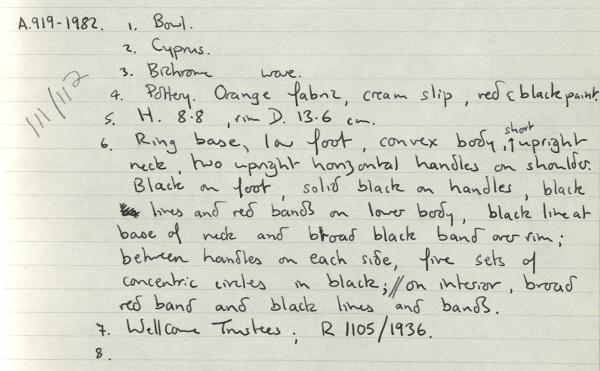 A.919-1982. 1. Bowl.
2. Cyprus.
3. Bichrome ware.
4. Pottery. Orange fabric, cream slip, red & black paint.
5. H. 8.8, rim D. 13.6 cm.
6. Ring base, low foot, convex body, short upright
neck, two upright horizontal handles on shoulder.
Black on foot, solid black on handles, black
lines and red bands on lower body, black line at
base of neck and broad black band over rim;
between handles on each side, five sets of
concentric circles in black; // on interior, broad
red band and black lines and bands.
7. Wellcome Trustees; R 1105/1936.
8.
111/112